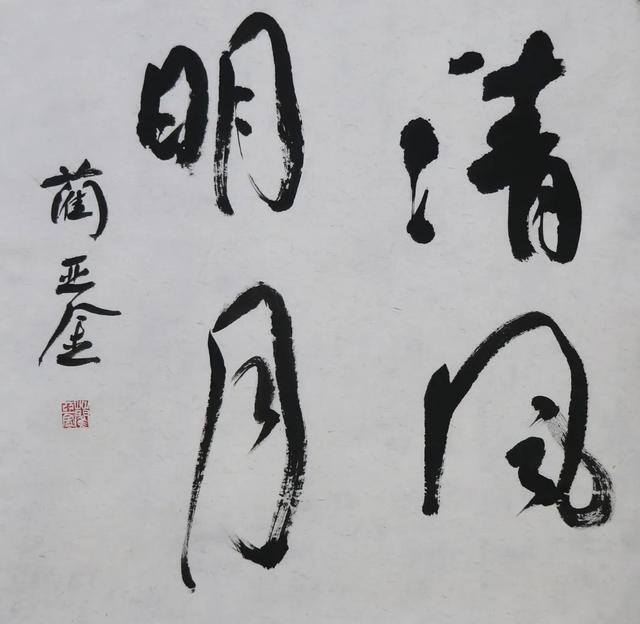 清风
明月
蔺亚金